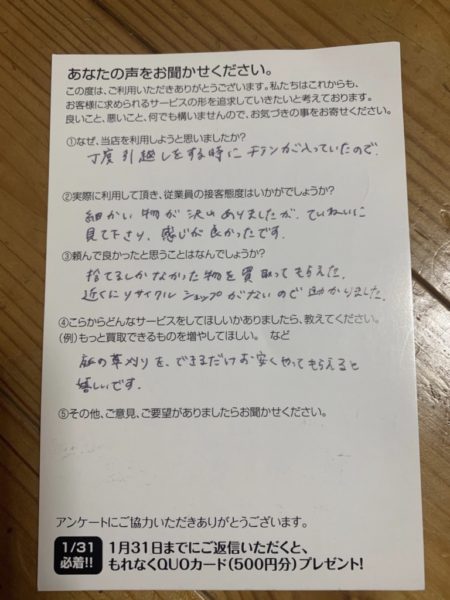 あなたの声をお聞かせください。
この度は、ご利用いただきありがとうございます。私たちはこれからも、
お客様に求められるサービスの形を追求していきたいと考えております。
良いこと、悪いこと、何でも構いませんので、お気づきの事をお寄せください。
①なぜ、当店を利用しようと思いましたか?
丁度引越しをする時にチラシが入っていたので.
②実際に利用して頂き、従業員の接客態度はいかがでしょうか?
細かい物が沢山ありましたが、ていねいに
見て下さり、感じが良かったです.
③頼んで良かったと思うことはなんでしょうか?
捨てるしかなかった物を買取ってもらえた.
近くにリサイクルショップがないので助かりました.
④こらからどんなサービスをしてほしいかありましたら、教えてください。
(例)もっと買取できるものを増やしてほしい。 など
庭の草刈りを、できるだけお安くやってもらえると
嬉しいです.
⑤その他、ご意見、ご要望がありましたらお聞かせください。
アンケートにご協力いただきありがとうございます。
1/31
必着!!
1月31日までにご返信いただくと、
もれなくQUOカード(500円分)プレゼント!